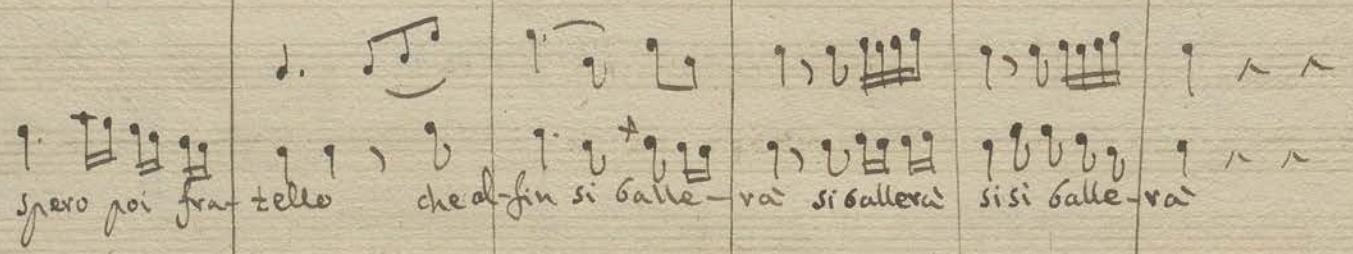 spero poi fra- tello che al- fin si balle- rà si ballerà si si balle- rà